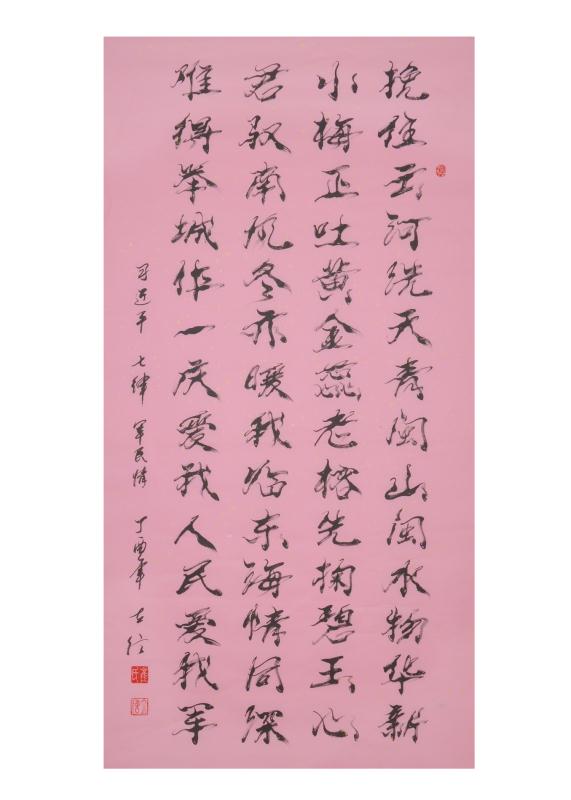 挽住云河洗天青闽山闽水物华新
小梅正吐黄金蕊老榕先掬碧玉心
君驭南风冬亦暖我临东海情同深
难得举城作一庆爱我人民爱我军
习近平 七律 军民情 丁酉年